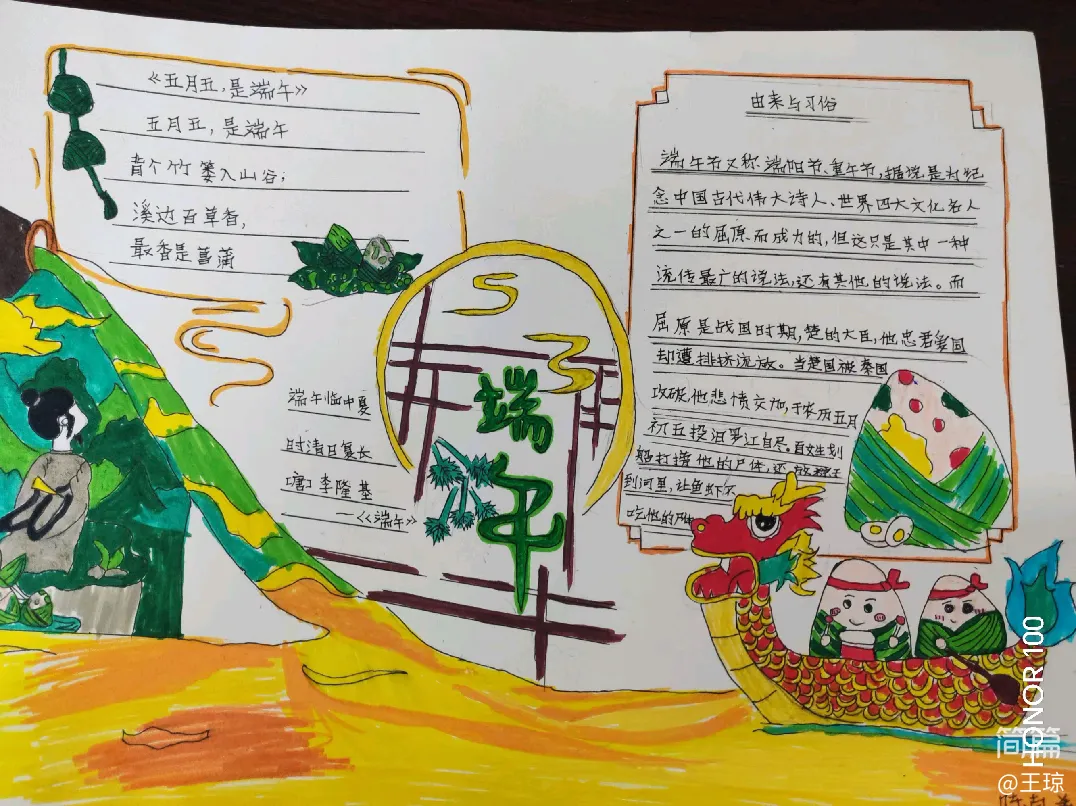 《五月五,是端午》
五月五,是端午
背个竹篓入山谷;
溪边百草香,
最香是菖蒲
端午临中夏
时清日复长
[唐]李隆基
—《端午》
端午
由来与习俗
端午节又称端阳节、重午节,据说是为纪
念中国古代伟大诗人、世界四大文化名人
之一的屈原而成力的,但这只是其中一种
流传最广的说法,还有其他的说法。而
屈原是战国时期,楚的大臣,他忠君爱国
却遭排挤流放。当楚国被秦国
攻破,他悲愤交加,于农历五月
初五投汨罗江自尽。百姓划
船打捞他的尸体,还
到河里,让鱼虾不
吃他的尸体
HONOR 100
简篇
@王琼